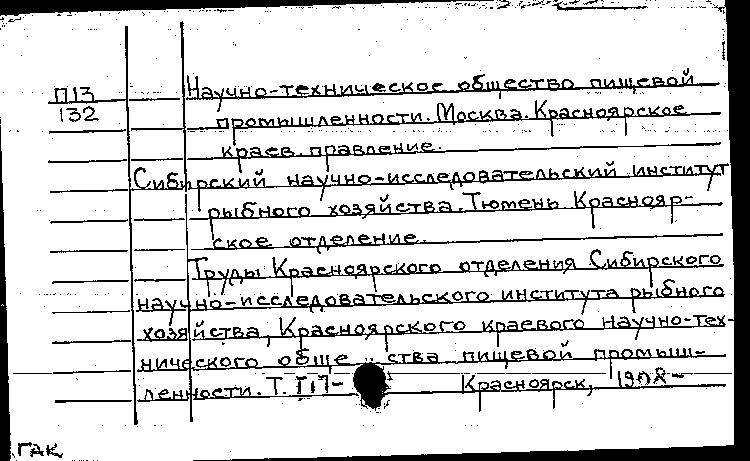 П13
132
Научно-техническое общество пищевой
промышленности. Москва. Красноярское
краев. правление.
Сибирский научно-исследовательский институт
рыбного хозяйства. Тюмень. Краснояр-
ское отделение.
Труды Красноярского отделения Сибирского
научно-исследовательского института рыбного
хозяйства, Красноярского краевого научно-тех-
нического обще ства пищевой промыш-
ленности. Т.
Красноярск,
ГАК